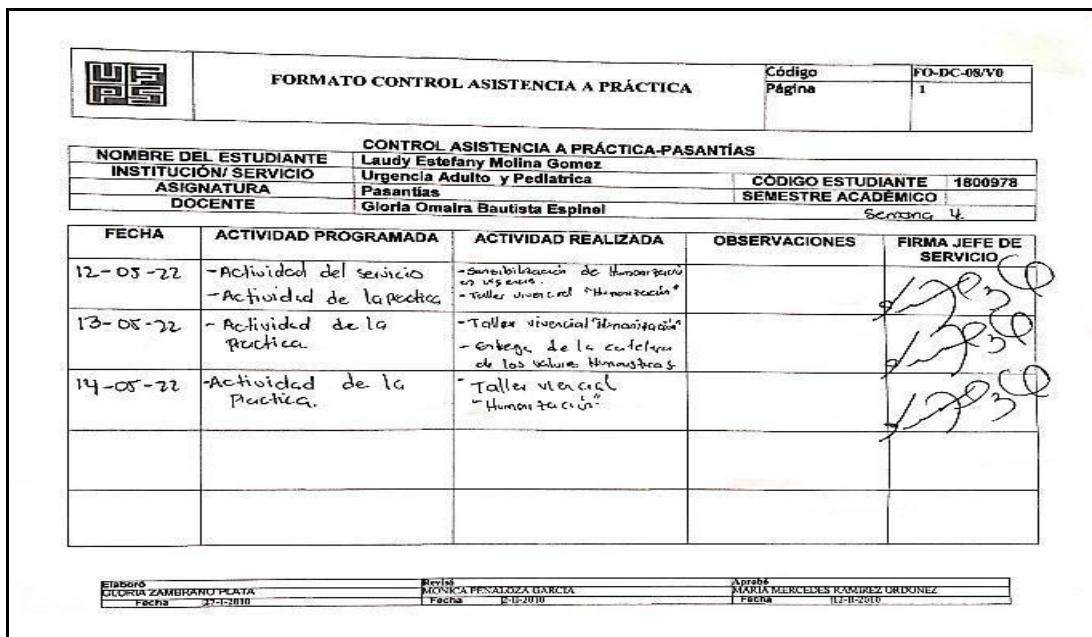 UFPS
FORMATO CONTROL ASISTENCIA A PRÁCTICA
Código FO-DC-08/V0
Página 1
CONTROL ASISTENCIA A PRÁCTICA-PASANTÍAS
NOMBRE DEL ESTUDIANTE Laudy Estefany Molina Gomez
INSTITUCIÓN/ SERVICIO Urgencia Adulto y Pediatrica CÓDIGO ESTUDIANTE 1800978
ASIGNATURA Pasantias SEMESTRE ACADÉMICO
DOCENTE Gloria Omaira Bautista Espinel
Semana 4.
FECHA ACTIVIDAD PROGRAMADA ACTIVIDAD REALIZADA OBSERVACIONES FIRMA JEFE DE SERVICIO
12-05-22
-Actividad del servicio
-Actividad de la practica
-Sensibilización de Humanización
en urgencia.
-Taller vivencial "Humanización"
13-05-22
- Actividad de la
practica
-Taller vivencial "Humanización"
- Entrega de la
de los valores
14-05-22
-Actividad de la
Practica.
- Taller
"Humanización"
Elaboró
GLORIA ZAMBRANO PLATA
Fecha 27-1-2010
Revisó
MONICA PEÑALOZA GARCIA
Fecha 2-II-2010
Aprobó
MARIA MERCEDES RAMIREZ ORDOÑEZ
Fecha 12-II-2010